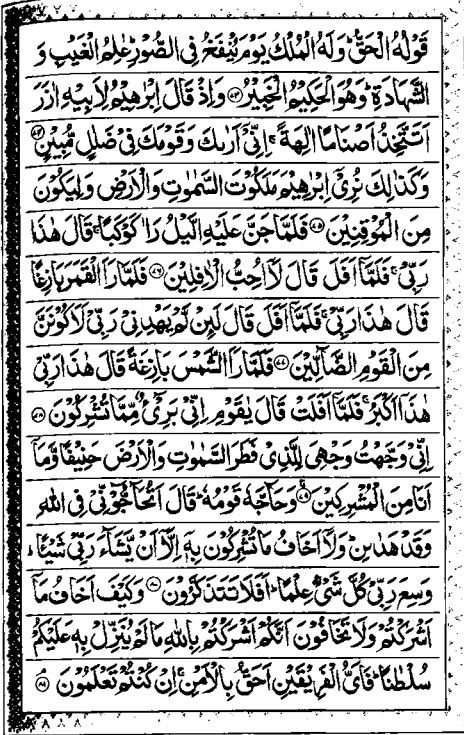 قَوْلُهُ الْحَقُّ ؕ وَلَهُ الْمُلْكُ يَوْمَ يُنْفَخُ فِى الصُّوْرِ ؕ عٰلِمُ الْغَيْبِ وَ
الشَّهَادَةِ ؕ وَهُوَ الْحَكِيْمُ الْخَبِيْرُ ۝۷۳ وَاِذْ قَالَ اِبْرٰهِيْمُ لِاَبِيْهِ اٰزَرَ
اَتَتَّخِذُ اَصْنَامًا اٰلِهَةً ۚ اِنِّىْۤ اَرٰىكَ وَقَوْمَكَ فِىْ ضَلٰلٍ مُّبِيْنٍ ۝۷۴
وَكَذٰلِكَ نُرِىْۤ اِبْرٰهِيْمَ مَلَكُوْتَ السَّمٰوٰتِ وَالْاَرْضِ وَلِيَكُوْنَ
مِنَ الْمُوْقِنِيْنَ ۝۷۵ فَلَمَّا جَنَّ عَلَيْهِ الَّيْلُ رَاٰ كَوْكَبًا ۚ قَالَ هٰذَا
رَبِّىْ ۚ فَلَمَّاۤ اَفَلَ قَالَ لَاۤ اُحِبُّ الْاٰفِلِيْنَ ۝۷۶ فَلَمَّا رَاَ الْقَمَرَ بَازِغًا
قَالَ هٰذَا رَبِّىْ ۚ فَلَمَّاۤ اَفَلَ قَالَ لَئِنْ لَّمْ يَهْدِنِىْ رَبِّىْ لَاَكُوْنَنَّ
مِنَ الْقَوْمِ الضَّآلِّيْنَ ۝۷۷ فَلَمَّا رَاَ الشَّمْسَ بَازِغَةً قَالَ هٰذَا رَبِّىْ
هٰذَاۤ اَكْبَرُ ۚ فَلَمَّاۤ اَفَلَتْ قَالَ يٰقَوْمِ اِنِّىْ بَرِىْٓءٌ مِّمَّا تُشْرِكُوْنَ ۝۷۸
اِنِّىْ وَجَّهْتُ وَجْهِىَ لِلَّذِىْ فَطَرَ السَّمٰوٰتِ وَالْاَرْضَ حَنِيْفًا وَّمَاۤ
اَنَا مِنَ الْمُشْرِكِيْنَ ۝۷۹ وَحَآجَّهٗ قَوْمُهٗ ؕ قَالَ اَتُحَآجُّوْٓنِّىْ فِى اللّٰهِ
وَقَدْ هَدٰىنِ ؕ وَلَاۤ اَخَافُ مَا تُشْرِكُوْنَ بِهٖۤ اِلَّاۤ اَنْ يَّشَآءَ رَبِّىْ شَيْئًا ؕ
وَسِعَ رَبِّىْ كُلَّ شَىْءٍ عِلْمًا ؕ اَفَلَا تَتَذَكَّرُوْنَ ۝۸۰ وَكَيْفَ اَخَافُ مَاۤ
اَشْرَكْتُمْ وَلَا تَخَافُوْنَ اَنَّكُمْ اَشْرَكْتُمْ بِاللّٰهِ مَا لَمْ يُنَزِّلْ بِهٖ عَلَيْكُمْ
سُلْطٰنًا ؕ فَاَىُّ الْفَرِيْقَيْنِ اَحَقُّ بِالْاَمْنِ ۚ اِنْ كُنْتُمْ تَعْلَمُوْنَ ۝۸۱